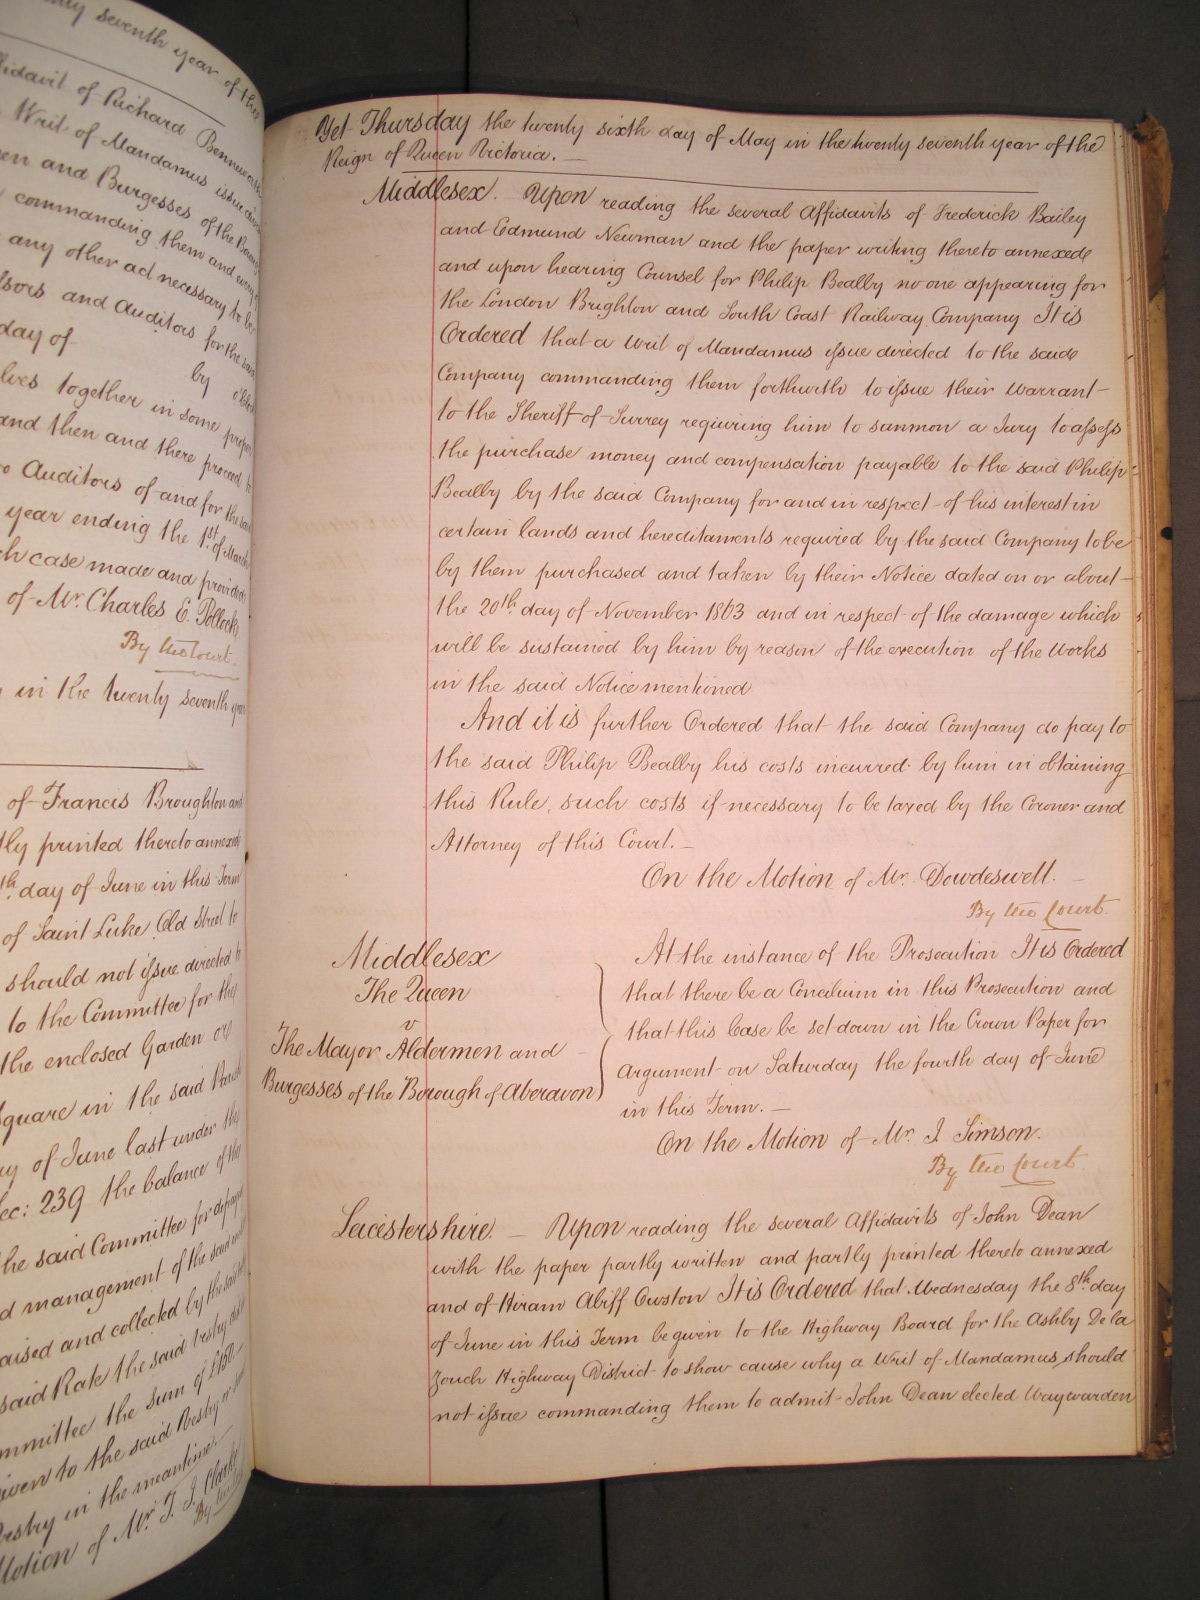 nty seventh year of the
ffidavit of Richard
Writ of Mandamus issue
en and Burgesses of the
commanding them and
any other act necessary to be
ssors and Auditors for the said
day of
by
lves together in some proper
and then and there proceed to
Auditors of and for the said
year ending the 1st of March
ch case made and provided
of Mr. Charles E. Pollock
By the Court.
in the twenty seventh year
of Francis Broughton and
tly printed thereto annexed
th. day of June in this Term
of Saint Luke Old Street to
should not issue directed to
to the Committee for the
the enclosed Garden of
Square in the said Parish
of June last under the
ec: 239 the balance of the
the said Committee for
d management of the said
aised and collected by the said
said Rate the said Vestry
mmittee the sum of
iven to the said Vestry
Vestry in the meantime.
Motion of Mr. T. J. Clark
By the
Yet Thursday the twenty sixth day of May in the twenty seventh year of the
Reign of Queen Victoria. —
Middlesex. Upon reading the several Affidavits of Frederick Bailey
and Edmund Newman and the paper writing thereto annexed
and upon hearing Counsel for Philip Bealby no one appearing for
the London Brighton and South Coast Railway Company It is
Ordered that a Writ of Mandamus issue directed to the said
Company commanding them forthwith to issue their Warrant
to the Sheriff of Surrey requiring him to summon a Jury to assess
the purchase money and compensation payable to the said Philip
Bealby by the said Company for and in respect of his interest in
certain lands and hereditaments required by the said Company to be
by them purchased and taken by their Notice dated on or about
the 20th day of November 1863 and in respect of the damage which
will be sustained by him by reason of the execution of the Works
in the said Notice mentioned
And it is further Ordered that the said Company do pay to
the said Philip Bealby his costs incurred by him in obtaining
this Rule, such costs if necessary to be taxed by the Coroner and
Attorney of this Court. —
On the Motion of Mr. Dowdeswell. —
By the Court.
Middlesex
The Queen
v
The Mayor Aldermen and
Burgesses of the Borough of Aberavon
At the instance of the Prosecution It is Ordered
that there be a Concilium in this Prosecution and
that this Case be set down in the Crown Paper for
Argument on Saturday the fourth day of June
in this Term. —
On the Motion of Mr. J. Simson.
By the Court
Leicestershire. — Upon reading the several Affidavits of John Dean
with the paper partly written and partly printed thereto annexed
and of Hiram Abiff Owston It is Ordered that Wednesday the 8th day
of June in this Term be given to the Highway Board for the Ashby De la
Zouch Highway District to show cause why a Writ of Mandamus should
not issue commanding them to admit John Dean elected Waywarden